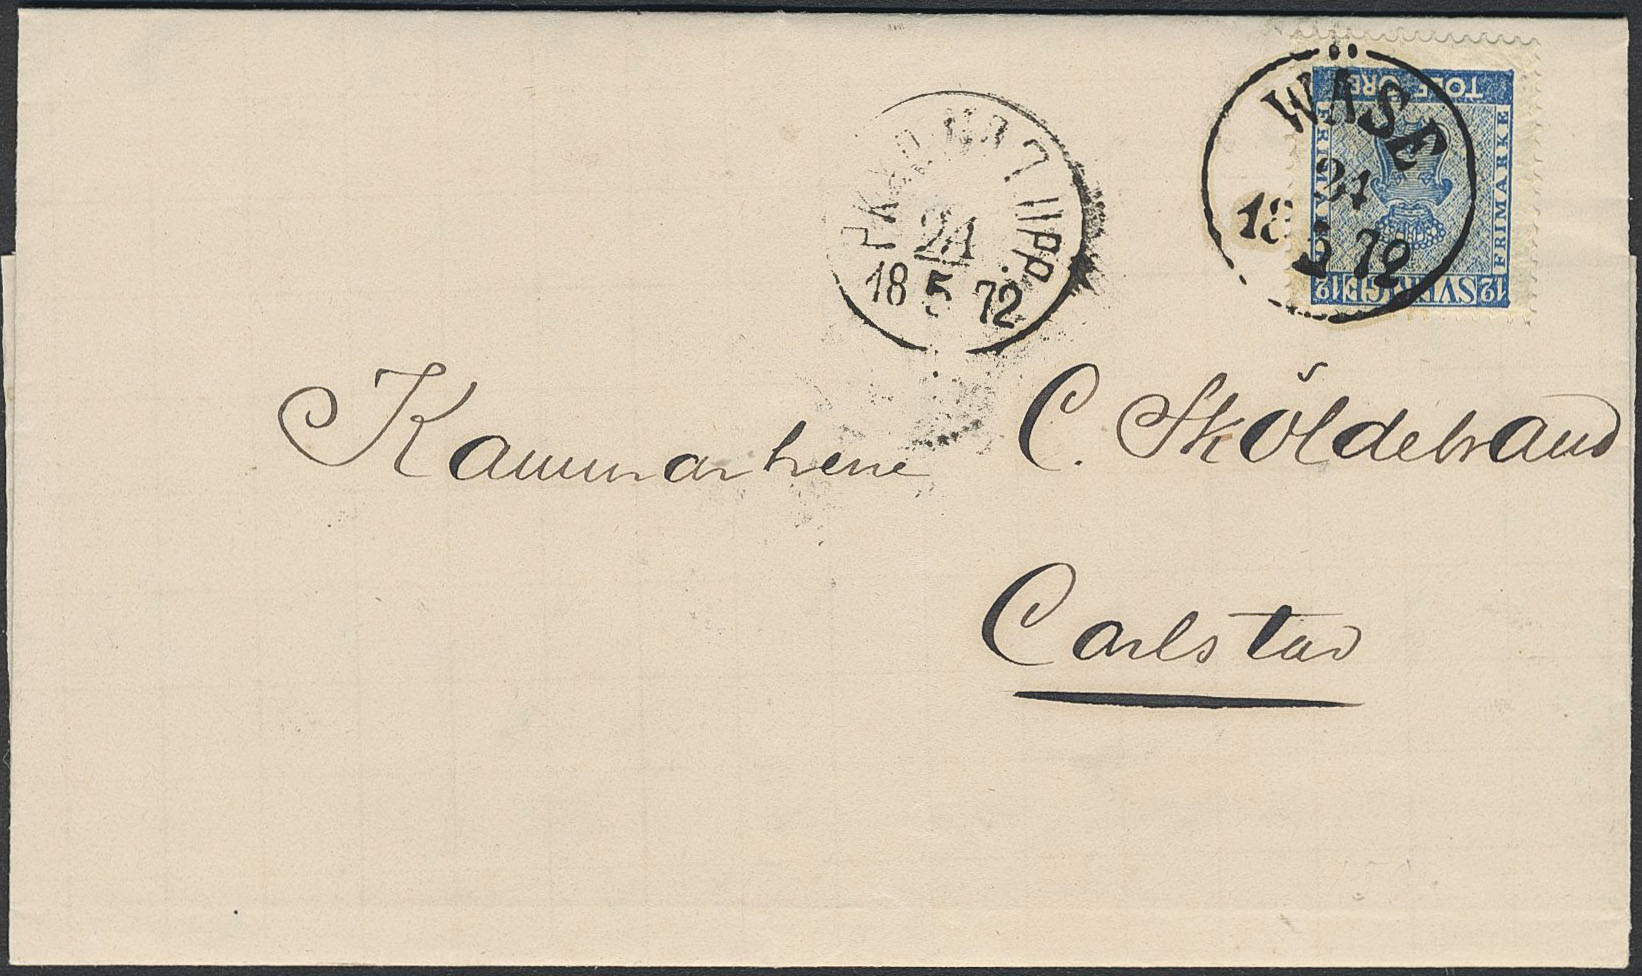 WÄSE
24
18 5 72
PKXP. Nr 2 UPP
24
18 5 72
TOLF ÖRE
FRIMÄRKE
FRIMÄRKE
12 SVERIGE 12
Kammarherre C. Sköldebrand
Carlstad